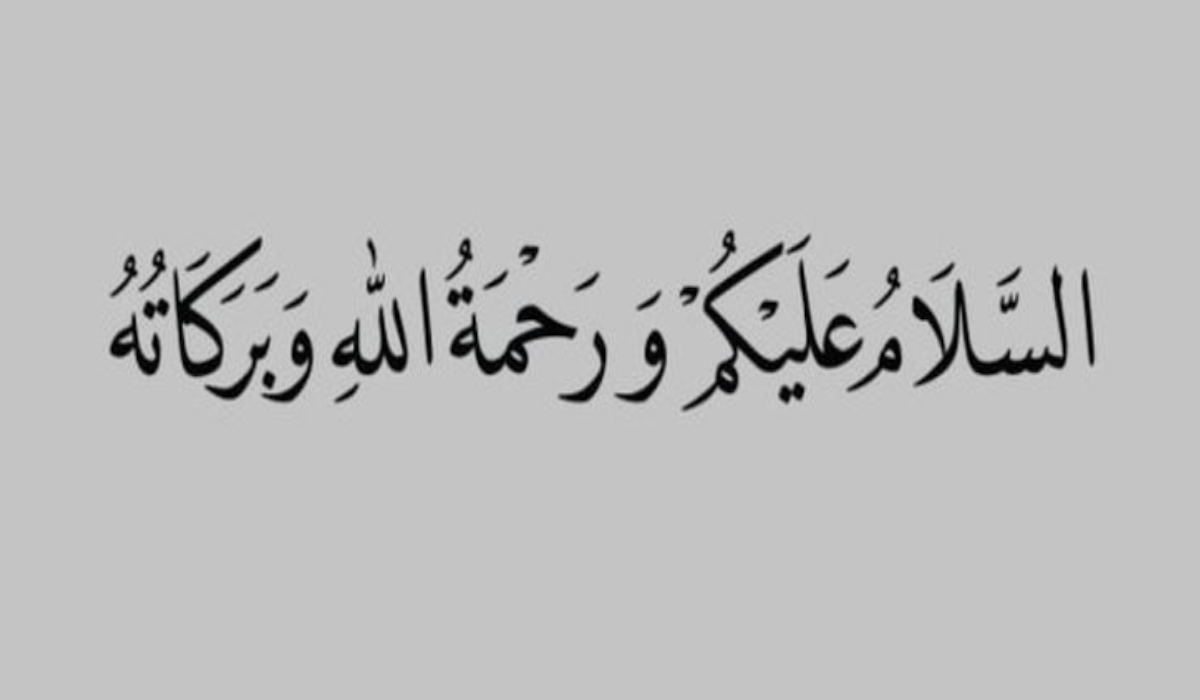 السَّلَامُ عَلَيْكُمْ وَ رَحْمَةُ اللّٰهِ وَبَرَكَاتُهُ